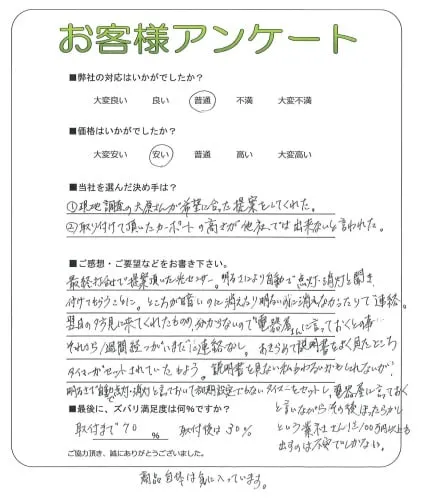 お客様アンケート
■弊社の対応はいかがでしたか？
大変良い 良い 普通 不満 大変不満
■価格はいかがでしたか？
大変安い 安い 普通 高い 大変高い
■当社を選んだ決め手は？
①現地調査の大原さんが希望に合った提案をしてくれた。
②取り付けて頂いたカーポートの高さが他社では出来ないと言われた。
■ご感想・ご要望などをお書き下さい。
最終打合せで提案頂いた光センサー。明るさにより自動で点灯・消灯と聞き
付けてもらうことに。ところが暗いのに消えたり明るいのに消えなかったりで連絡。
翌日の夕方見に来てくれたものの、分からないので"電器屋さんに言っておくとの事…
それから1週間経つがいまだに連絡なし。あきらめて説明書をよく見たところ
タイマーがセットされていたもよう。説明書を見ない私もわるいかもしれないが、
明るさで自動点灯・消灯と言っておいて初期設定でもないタイマーをセットし、電器屋に言っておく
と言いながらその後ほったらかし
という業社さんに100万円以上も
出すのは不安でしかない。
■最後に、ズバリ満足度は何％ですか？
取付まで70 % 取付後は30%
ご協力頂き、誠にありがとうございました。
商品自体は気に入っています。